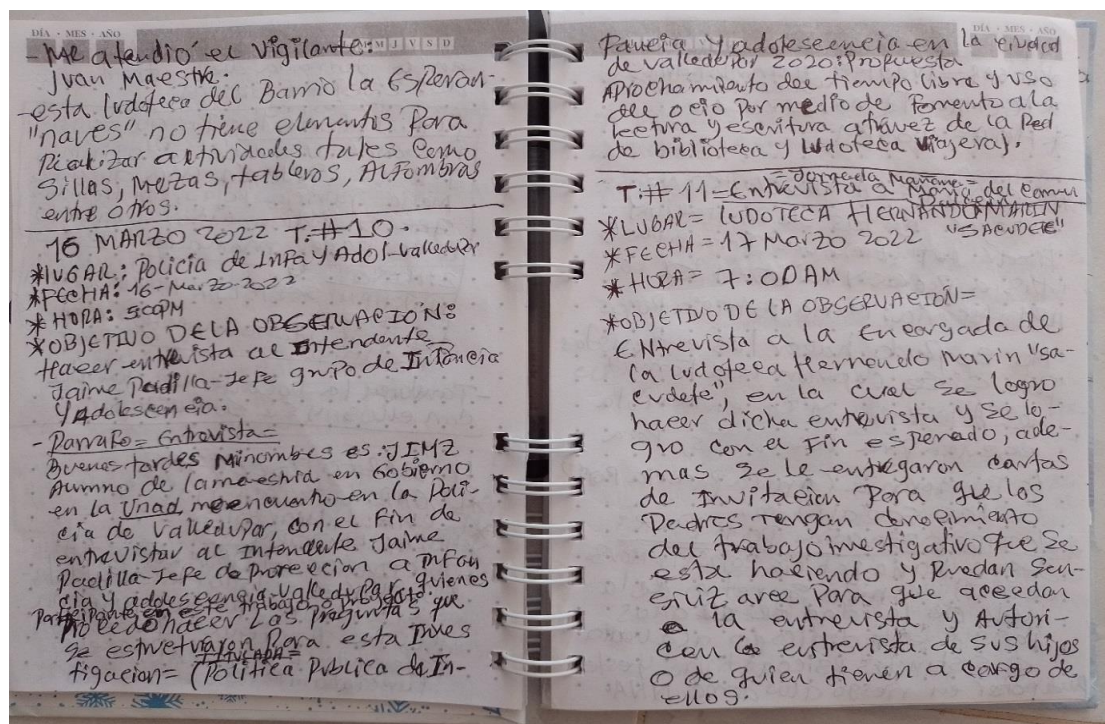 DÍA · MES · AÑO
M M J V S D
- Me atendio el vigilante:
Juan Maestre.
- esta ludoteca del Barrio la Esperan-
"naves" no tiene elementos Para
Realizar actividades tales como
Sillas, Mezas, tableros, Alfombras
entre otros.
16 MARZO 2022 T.#10.
*LUGAR: Policia de Infa y Adol-Valledupar
*FECHA: 16-Marzo-2022
* HORA: 5:00PM
*OBJETIVO DE LA OBSERVACIÓN:
Hacer entrevista al Intendente
Jaime Padilla-Jefe grupo de Infancia
y Adolescencia.
- Parrafo = Entrevista =
Buenas tardes Minombres es: JIMZ
Aumno de la maestria en Gobierno
en la Unad me encuentro en la Poli-
cia de Valledupar, con el Fin de
entrevistar al Intendente Jaime
Padilla-Jefe de Proteccion a Infan
cia y adolescencia-Valledupar, quienes
Participante en este trabajo o proyecto
Procedo hacer Las Preguntas que
se estructuraron Para esta Inves
TITULADA=
tigacion = (Politica Publica de In-
DÍA · MES · AÑO
Fancia y adolescencia en la ciudad
de Valledupar 2020: Propuesta
Aprochamiento del tiempo libre y uso
del ocio por medio de Fomento a la
Lectura y escritura através de la Red
de biblioteca y Ludoteca Viajera).
= Jornada Mañana =
T.# 11 = Entrevista a Maria del Carmen
*LUGAR = LUDOTECA HERNANDO MARIN
"SACUDETE"
*FECHA = 17 Marzo 2022
* HORA = 7:00AM
*OBJETIVO DE LA OBSERVACIÓN=
Entrevista a la encargada de
la ludoteca Hernando Marin "sa-
cudete", en la cual se logro
hacer dicha entrevista y se lo-
gro con el Fin esperado, ade-
mas se le entregaron cartas
de Invitacion Para que los
Padres tengan conocimiento
del trabajo investigativo que se
esta haciendo y Puedan Sen-
sivilizarce Para que accedan
a la entrevista y Autori-
cen la entrevista de sus hijos
o de quien tienen a cargo de
ellos.